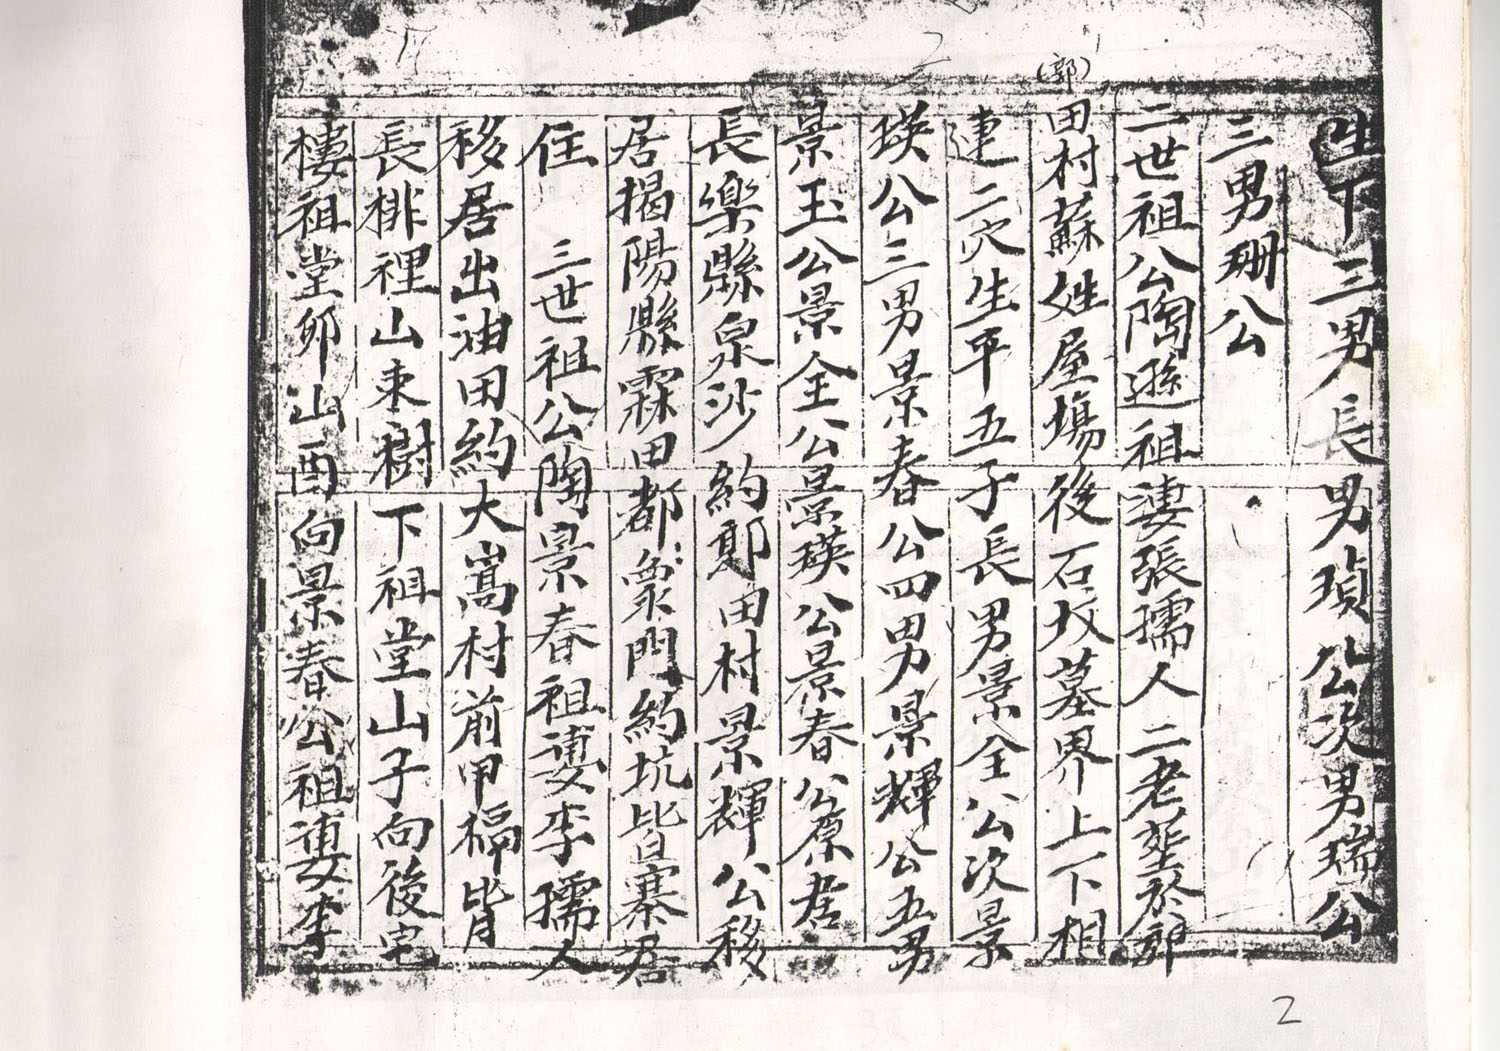 生下三男長男瑣公次男瑞公
三男珊公
二世祖公陶遜祖妻張孺人二老塟於郭
(郭)
田村蘇姓屋塲後石坟墓界上下相
連二穴生平五子長男景全公次景
瑛公三男景春公四男景輝公五男
景玉公景全公景瑛公景春公原居
長樂縣泉沙約鄭田村景輝公移
居揭陽縣霖田都象門約坑皆寨居
住 三世祖公陶景春祖妻李孺人
移居出油田約大嵩村前甲槅背
長排裡山束樹下祖堂山子向後宅
樓祖堂卯山酉向景春公祖妻李
2